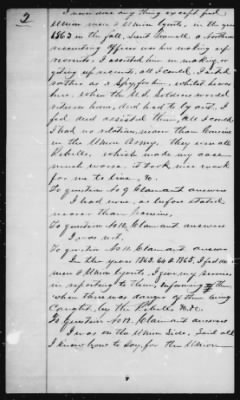 2
I never done any thing except feed
Union men & Union Agents, in the year
1863 in the fall, Lieut a Northern
recruiting officer was here making up
recruits, I assisted him in making or
getting up recruits all I could, I acted
rather as a Spy for him, whilst he was
here. When the U.S. Soldiers would
return home, and had to lay out, I
fed and assisted them, all I could
I had no relatives nearer than Cousins
in the Union Army, they were all
Rebels, which made my case
much worse. it took me
for me to live, &c.
To question No 9 Claimant answers
I had none, as before stated
nearer than Cousins,
To question No 10 Claimant answers
I was not,
To question No 11. Claimant answers
In the year 1863. 64 & 1865, I fed Union
men & Union Agents, I gave my services
in reporting to them, informing them
when there was danger of them being
Caught, by the Rebels &c.
To Question No 12. Claimant answers
I was on the Union Side, Said all
I knew how to Say, for the Union